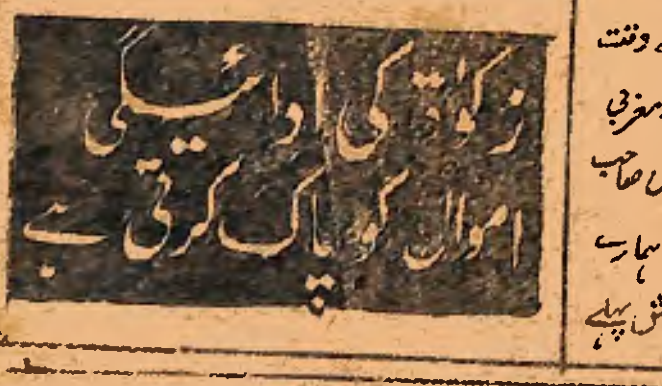 زکوٰۃ کی ادائیگی
اموال کو پاک کرتی ہے
وقت
مغربی
صاحب
ہمارے
پہلے